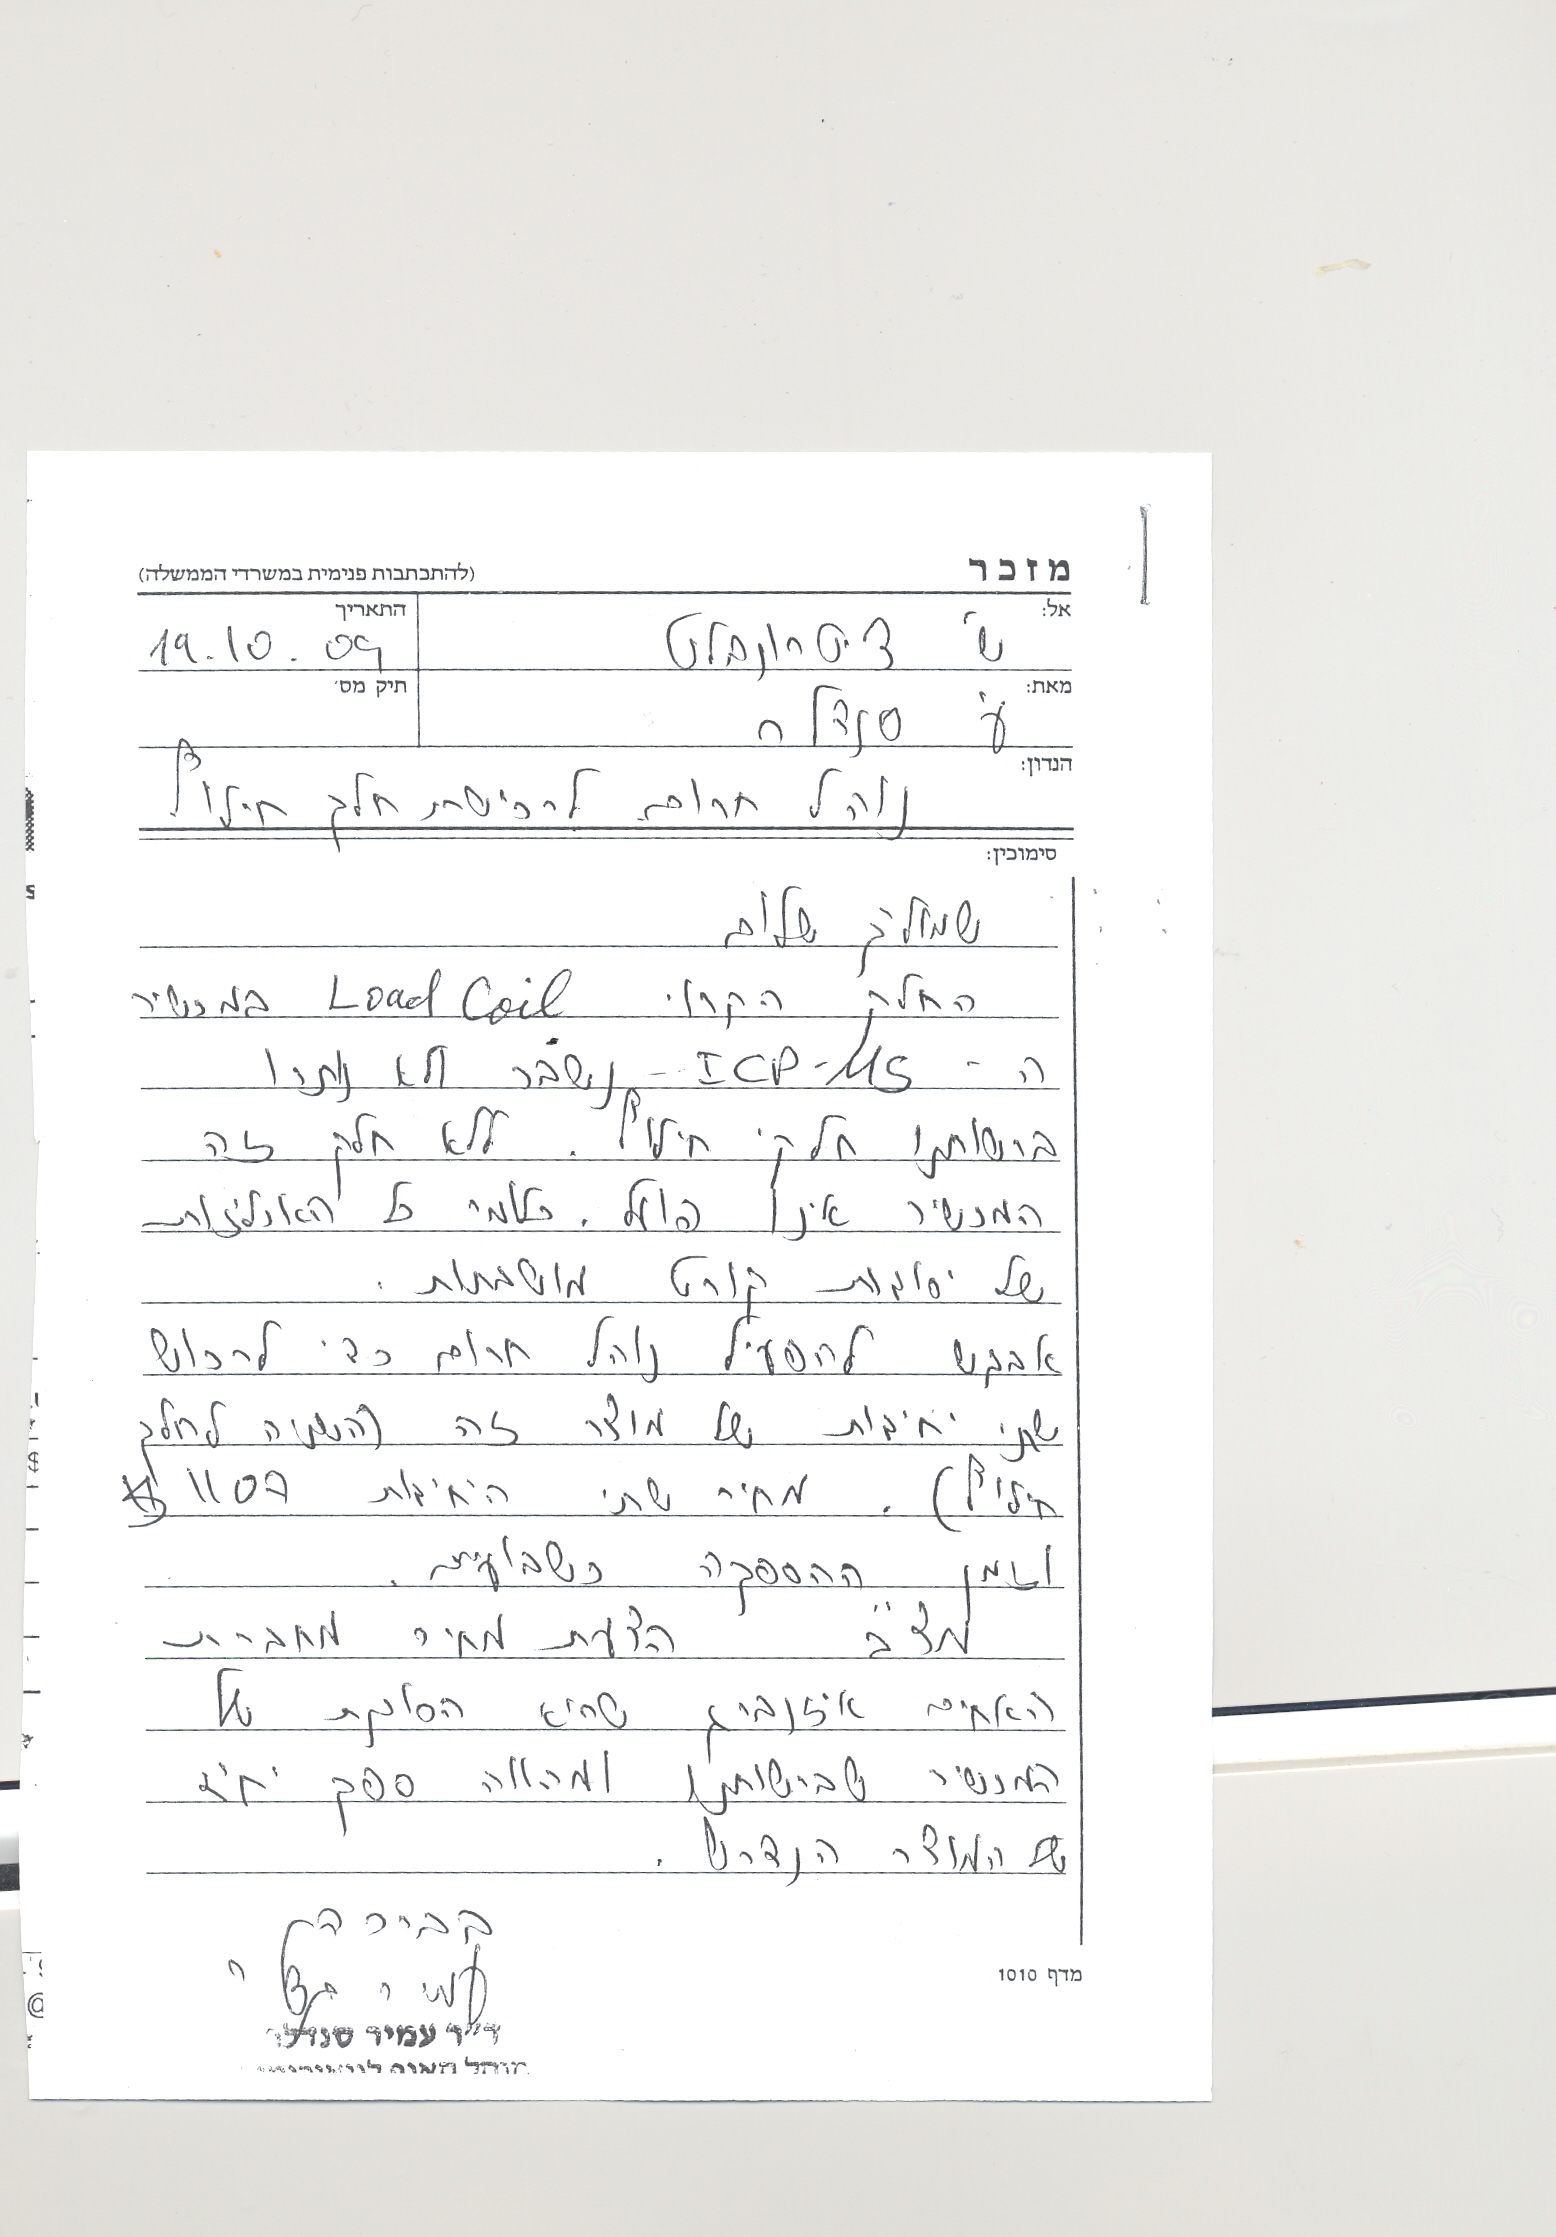 מזכר
(להתכתבות פנימית במשרדי הממשלה)
אל:
ש' ציטרונבלט
התאריך
19.10.09
מאת:
ע' סנדלר
תיק מס'
הנדון:
נוהל חרום לרכישת חלק חילוף
סימוכין:
שמוליק שלום
החלק הקרוי Load Coil במכשיר
ה - ICP-MS - נשבר ולא נותרו
ברשותנו חלקי חילוף. ללא חלק זה
המכשיר אינו פועל. כלומר כל האנליזות
של יסודות קורט מושבתות.
אבקש להפעיל נוהל חרום כדי לרכוש
שתי יחידות של מוצר זה (השניה לחלק
חילוף). מחיר שתי היחידות 1107 $
וזמן ההספקה כשבועיים.
מצ"ב הצעת מחיר מחברת
האחים איזנברג שהיא הסוכנת של
המכשיר שברשותנו ומהווה ספק יחיד
של המוצר הנדרש.
בברכה
עמיר סנדלר
ד"ר עמיר סנדלר
מדף 1010